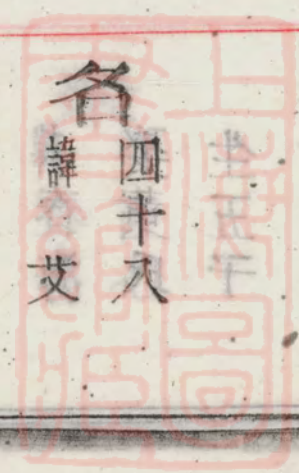 名
四十八
諱 艾